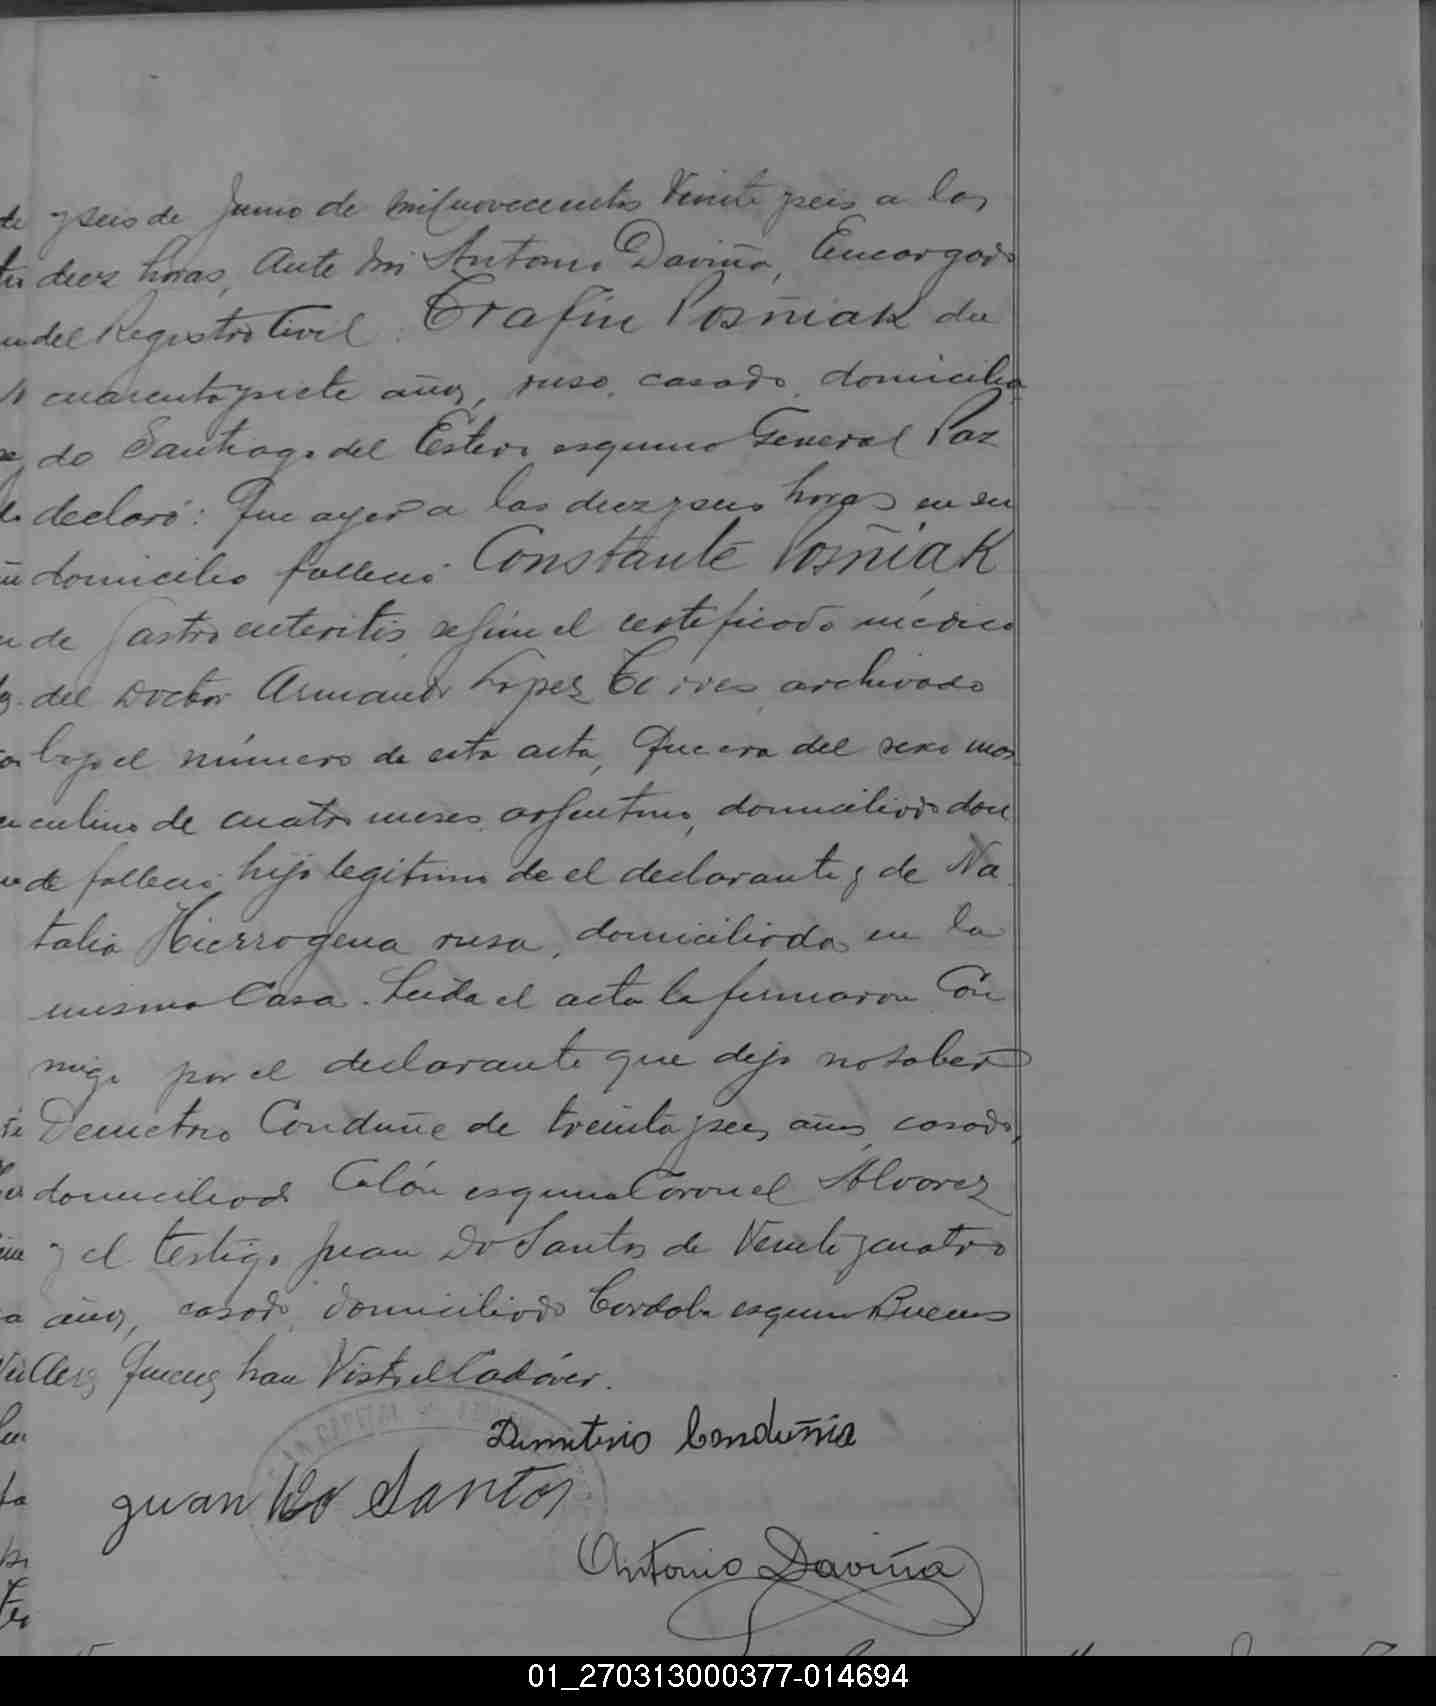 y seis de Junio de mil novecientos Veinte y seis a las
diez horas, Ante mi Antonio Daviña, Encargado
del Registro Civil. Trafin Posñiak de
cuarenta y siete años, ruso, casado, domicilia
do Santiago del Estero esquina General Paz
declaró: Que ayer a las diez y seis horas en su
domicilio falleció Constante Posñiak
de Gastro enteritis según el certificado médico
del Doctor Armando Lopez Torres, archivado
bajo el número de esta acta, Que era del sexo mas
culino de cuatro meses, argentino, domiciliado don
de falleció, hijo legitimo de el declarante y de Na
talia Hierrogena rusa, domiciliada en la
misma Casa. Leida el acta la firmaron Con
migo por el declarante que dijo no saber
Demetrio Conduñe de treinta y seis años, casado,
domiciliado Colón esquina Coronel Alvarez
y el testigo Juan Do Santos de Veinte y cuatro
años, casado, domiciliado Cordoba esquina Buenos
Aires Quienes han Visto el Cadáver.
Demeterio Conduñia
Juan Do Santos
Antonio Daviña
01_270313000377-014694